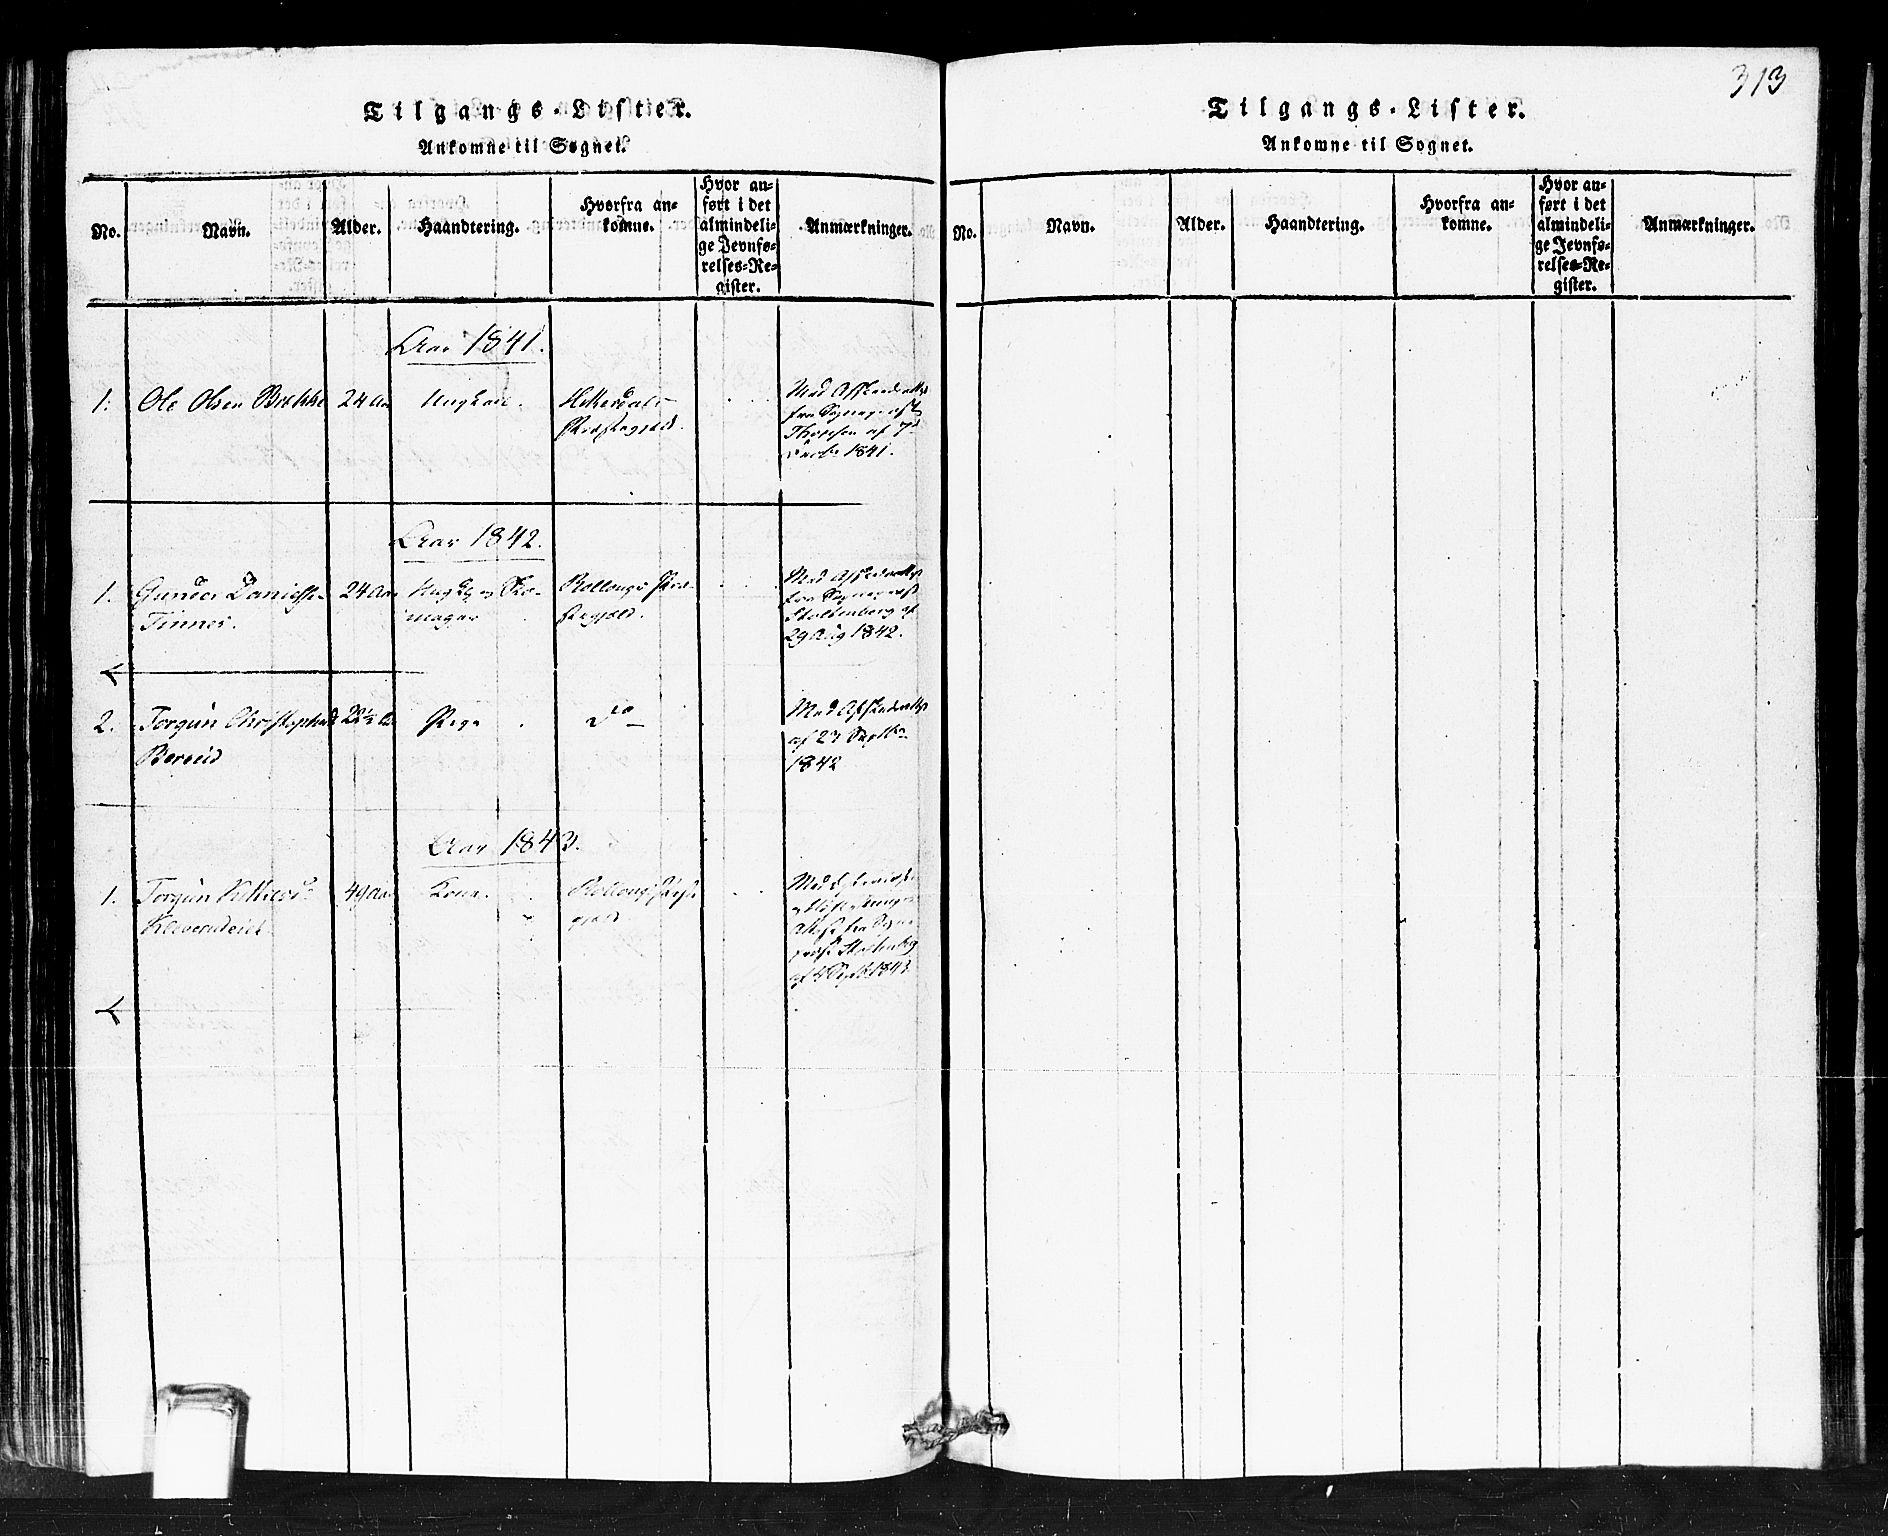 Tilgangs-Lister.
Ankomne til Sognet.
No.
Navn.
Alder.
Haandtering.
Hvorfra an-
komne.
Hvor an-
ført i det
almindeli-
ge Jevnfø-
relses-Re-
gister.
Anmærkninger.
Aar 1841.
1. Ole Olsen Brekke 24 Aar Ungkarl. Hitterdals
Præstegjeld.
Med Afskedsattest
fra Sognepræst
af 7de
1841.
Aar 1842.
1. Gunder Danielsen
Tinnes.
24 Aar Ungk. og Sko-
mager
Hollongs Præ-
stegjeld.
Med Afskedsattest
fra Sognepræst
Stoltenberg af
29 Aug 1842.
2. Torgun Christophersd
Bereid
22½ Aar Pige do
Med Afskedsattest
af 27 Septbr
1842
Aar 1843.
1. Torgun Kittilsd
49 Aar Kone. Hollongs Præste
gjeld
Med
Attest fra Sogne
præst Stoltenberg
af 4 Septb. 1843
313
Tilgangs-Lister.
Ankomne til Sognet.
No.
Navn.
Alder.
Haandtering.
Hvorfra an-
komne.
Hvor an-
ført i det
almindeli-
ge Jevnfø-
relses-Re-
gister.
Anmærkninger.